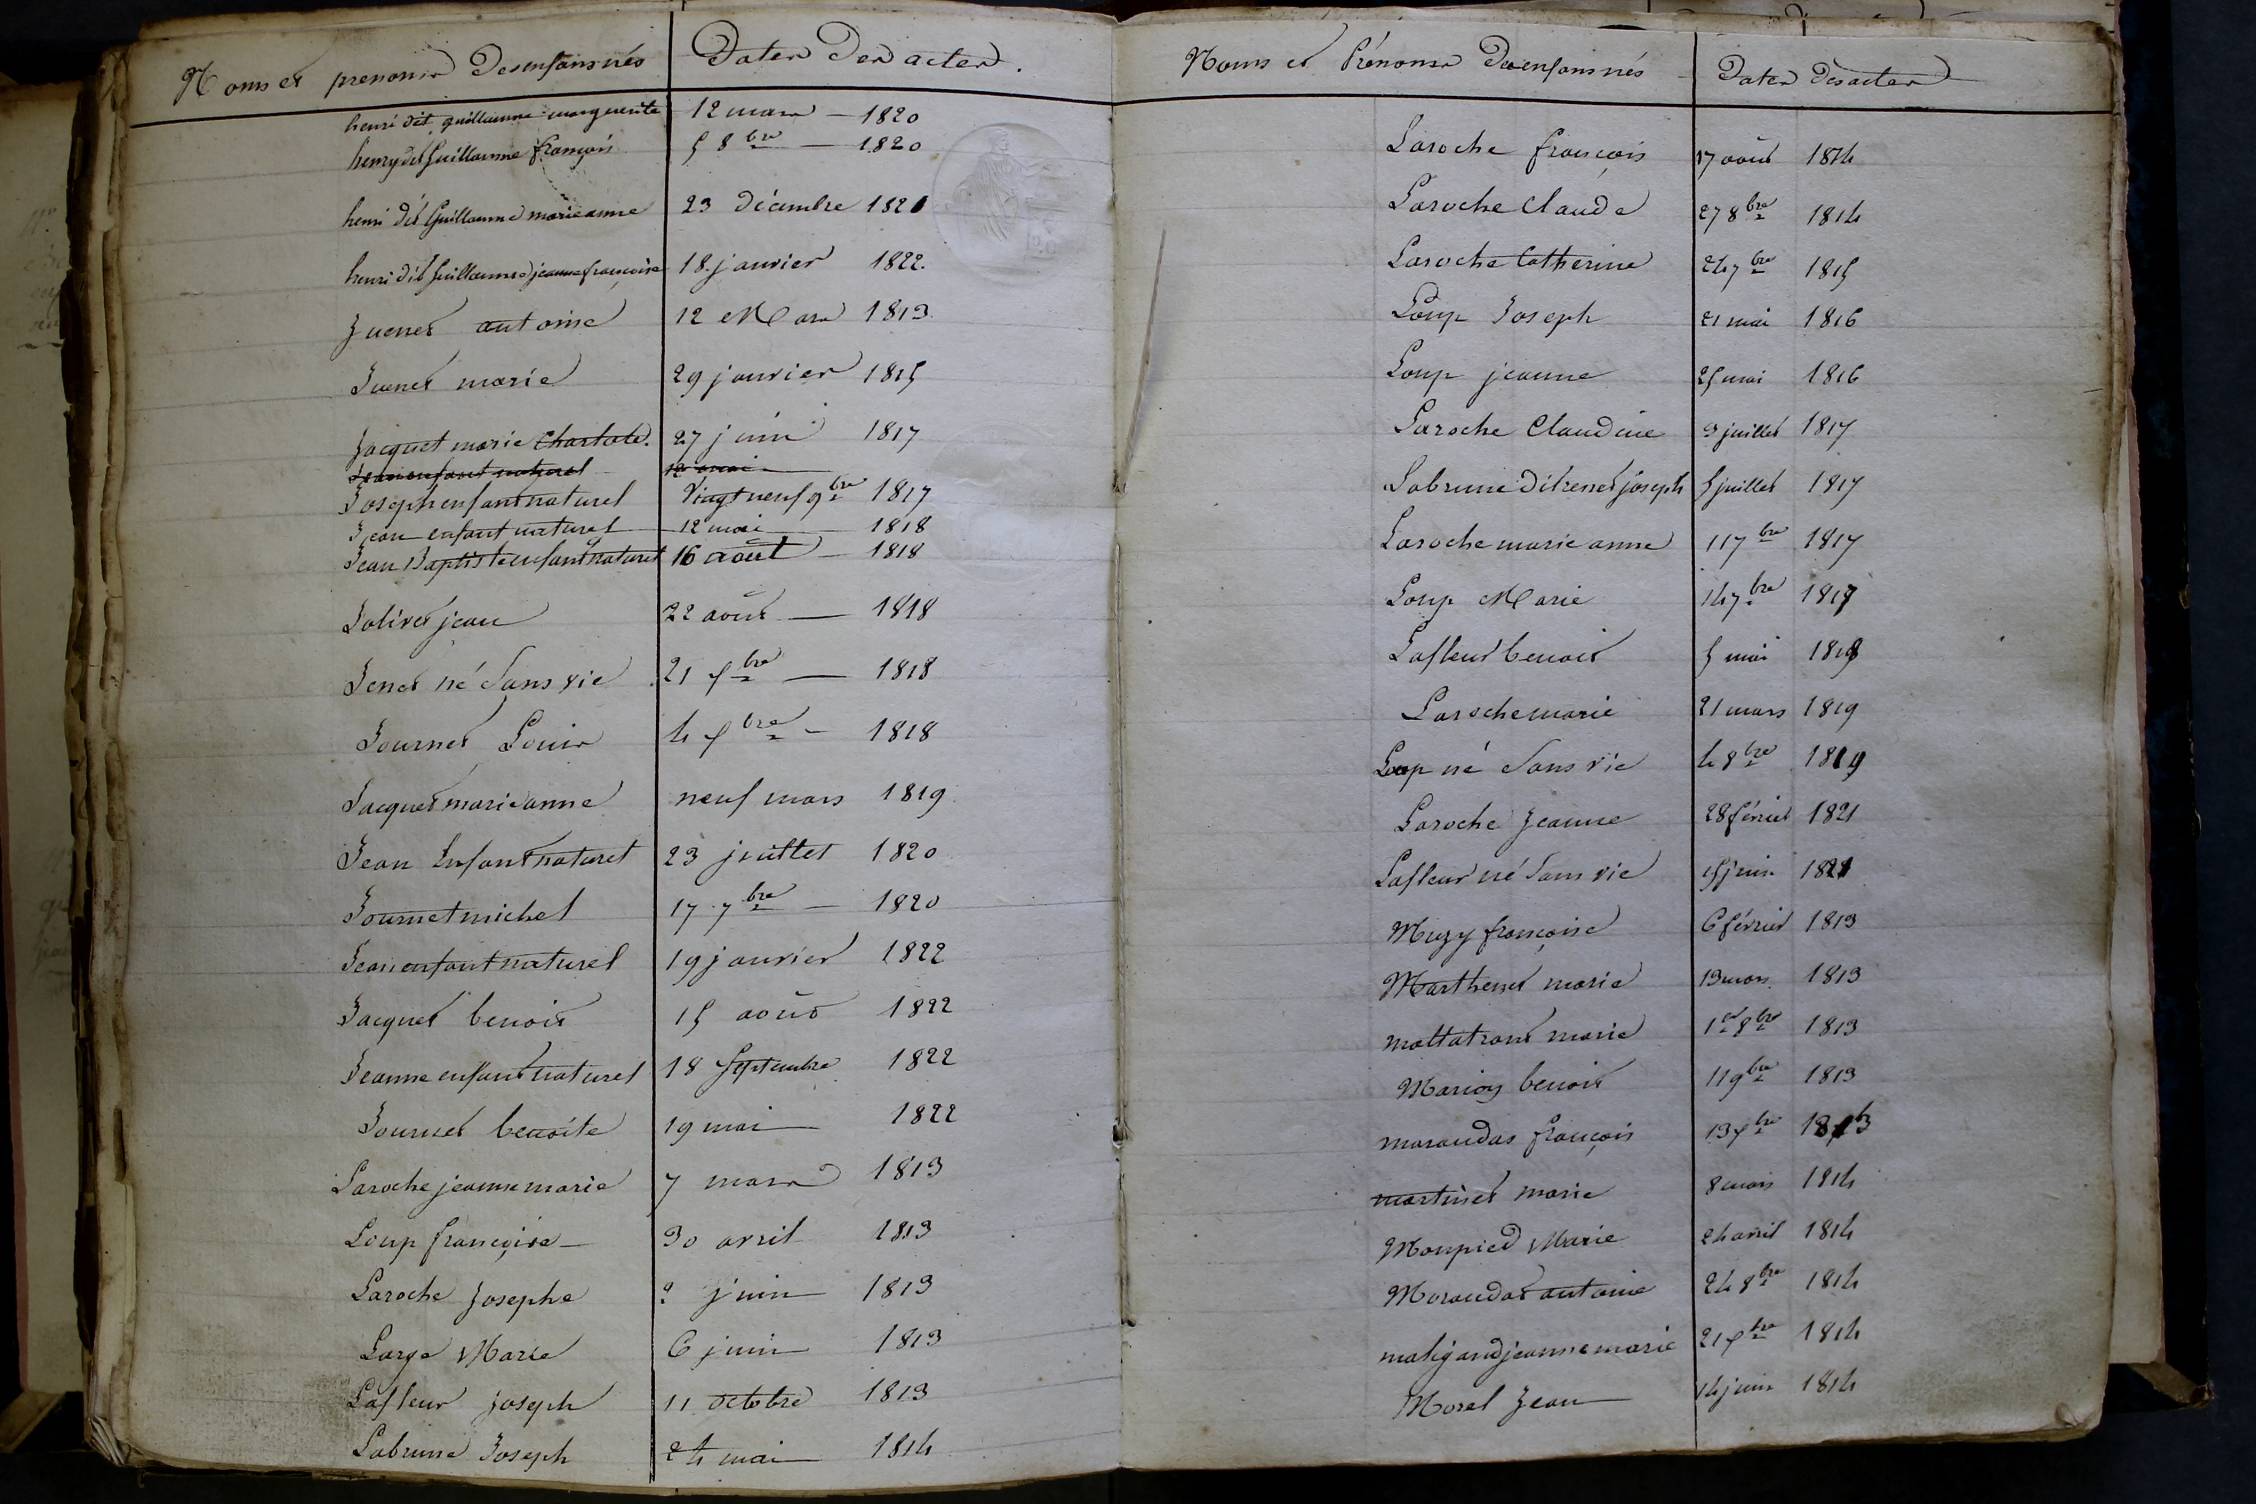 Noms et prenoms Des enfans nés Dates Des actes.
henri dit guillaume marguerite 12 mars - 1820
henry dit Guillaume françois 5 8bre - 1820
henri dit Guillaume marie anne 23 décembre 1821
henri dit Guillaume jeanne françoise 18 janvier 1822.
Juenet antoine 12 Mars 1813
Juenet marie 29 janvier 1815
Jacquet marie Charlote. 27 juin 1817
Jean enfant naturel 12 mai
Joseph enfant naturel Vingt neuf 9bre 1817
Jean enfant naturel 12 mai 1818
Jean Baptiste enfant naturel 16 août - 1818
Jolivet jean 22 août - 1818
Jenet né Sans vie 21 xbre - 1818
Journet Louis 4 xbre - 1818
Jacquet marie anne neuf mars 1819
Jean Enfant naturel 23 juillet 1820
Journet michel 17 7bre - 1820
Jean enfant naturel 19 janvier 1822
Jacquet benoit 15 août 1822
Jeanne enfant naturel 18 Septembre 1822
Journet benoite 19 mai 1822
Laroche jeanne marie 7 mars 1813
Loup françoise - 30 avril 1813
Laroche Josephe 2 juin 1813
Large Marie 6 juin 1813
Lafleur joseph 11 octobre 1813
Labrune Joseph 24 mai 1814
Noms et Prénoms Des enfans nés Dates des actes
Laroche françois 17 août 1814
Laroche Claude 27 8bre 1814
Laroche Catherine 24 7bre 1815
Loup Joseph 21 mai 1816
Loup jeanne 25 mai 1816
Laroche Claudine 3 juillet 1817
Labrune dit renet joseph 5 juillet 1817
Laroche marie anne 11 7bre 1817
Loup Marie 14 7bre 1817
Lafleur benoit 5 mai 1818
Laroche marie 21 mars 1819
Loup né Sans vie 4 8bre 1819
Laroche Jeanne 28 février 1821
Lafleur né Sans vie 15 juin 1821
Muzy françoise 6 février 1813
Marthenet marie 13 mars 1813
mattatrant marie 1er 8bre 1813
Marioy benoit 11 9bre 1813
maraudas françois 13 xbre 1813
martinet marie 8 mars 1814
Monpied Marie 24 avril 1814
Moraudas antoine 24 8bre 1814
matigand jeanne marie 21 xbre 1814
Morel Jean 14 juin 1814